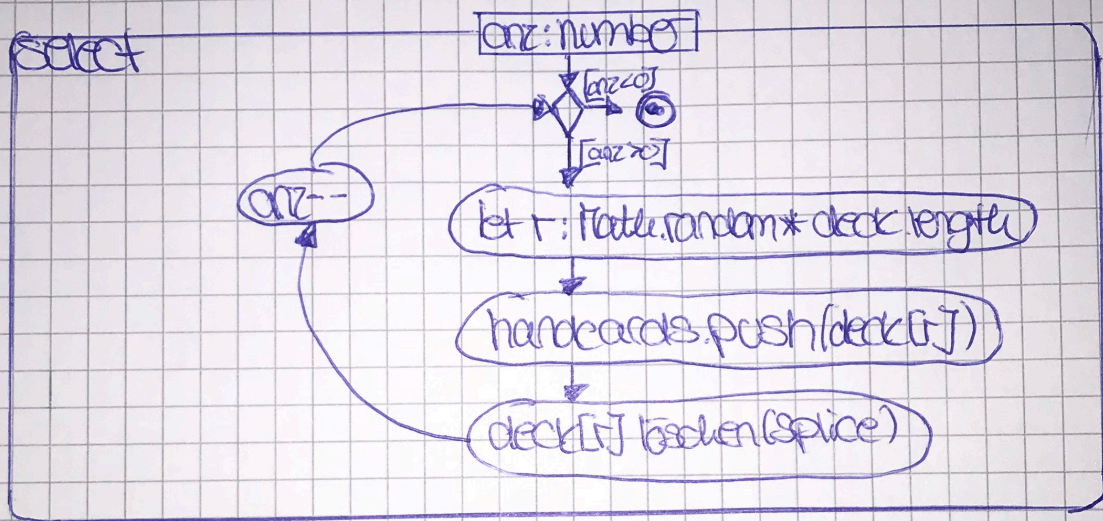 select
anz:number
[anz<0]
[anz>0]
anz--
let r: Math.random* deck.length
handcards.push(deck[r])
deck[r] löschen(splice)